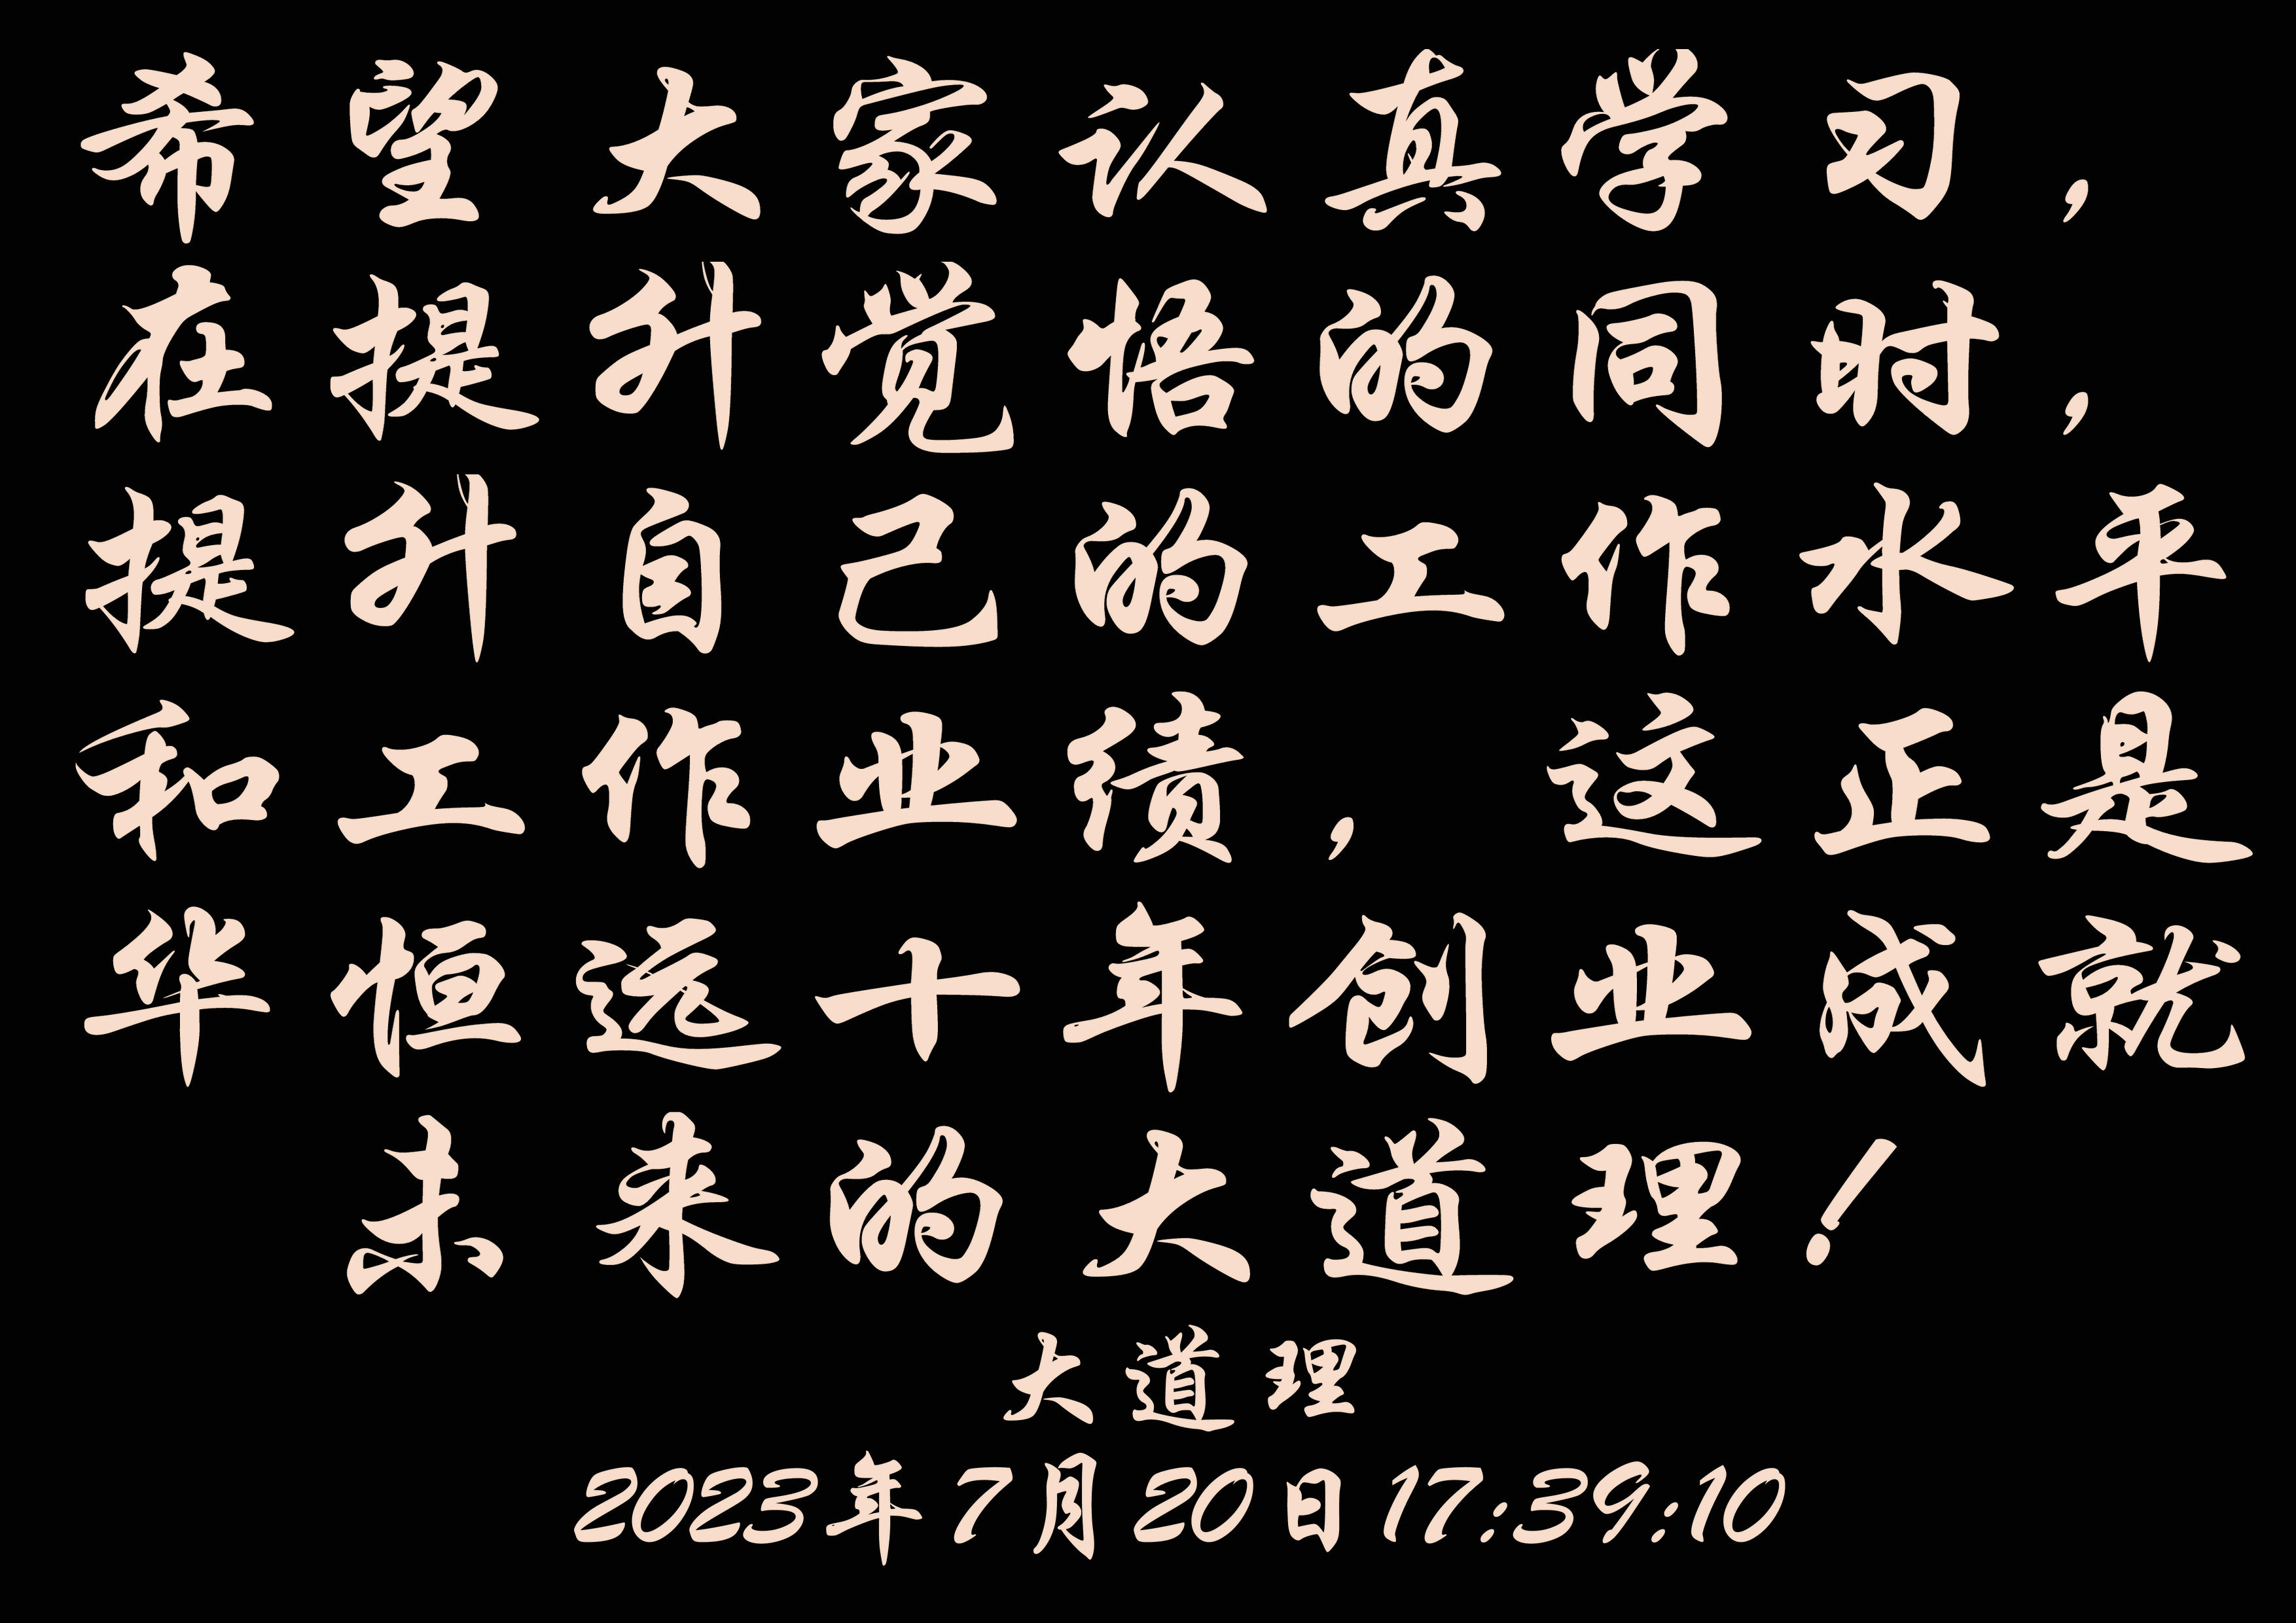 希望大家认真学习，
在提升觉悟的同时，
提升自己的工作水平
和工作业绩，这正是
华恒远十年创业成就
未来的大道理！
大道理
2023年7月20日17:39:10